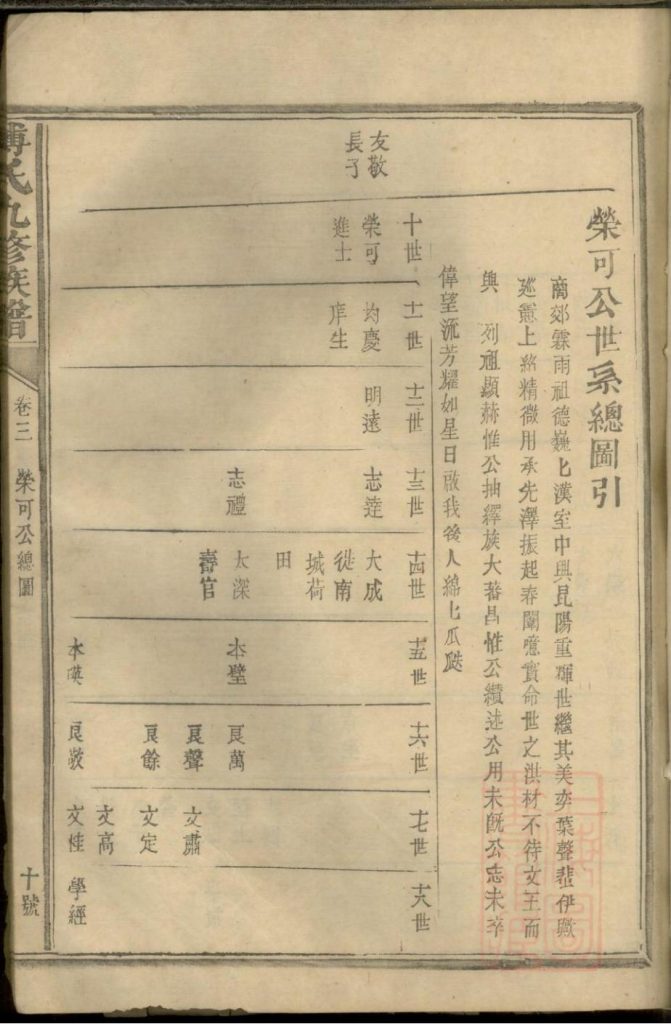 榮可公世系總圖引
商郊霖雨祖德巍匕漢室中興昆陽重輝世繼其美奕葉聲蜚伊歟
上
精微用承先澤振起春闈噫實命世之洪材不待文王而
興 列祖顯赫惟公抽繹族大蕃昌惟公纘述公用未既公志未卒
偉望流芳耀如星日啟我後人綿匕瓜瓞
友敬
長子
十世
榮可
進士
十一世
均慶
庠生
十二世
明遠
十三世
志達
志禮
十四世
大成
從南
城荷
田
太深
壽官
十五世
本璧
本英
十六世
良萬
良聲
良餘
良敬
十七世
文肅
文定
文高
文桂
十八世
學經
傅氏九修族譜
卷三
榮可公總圖
十號